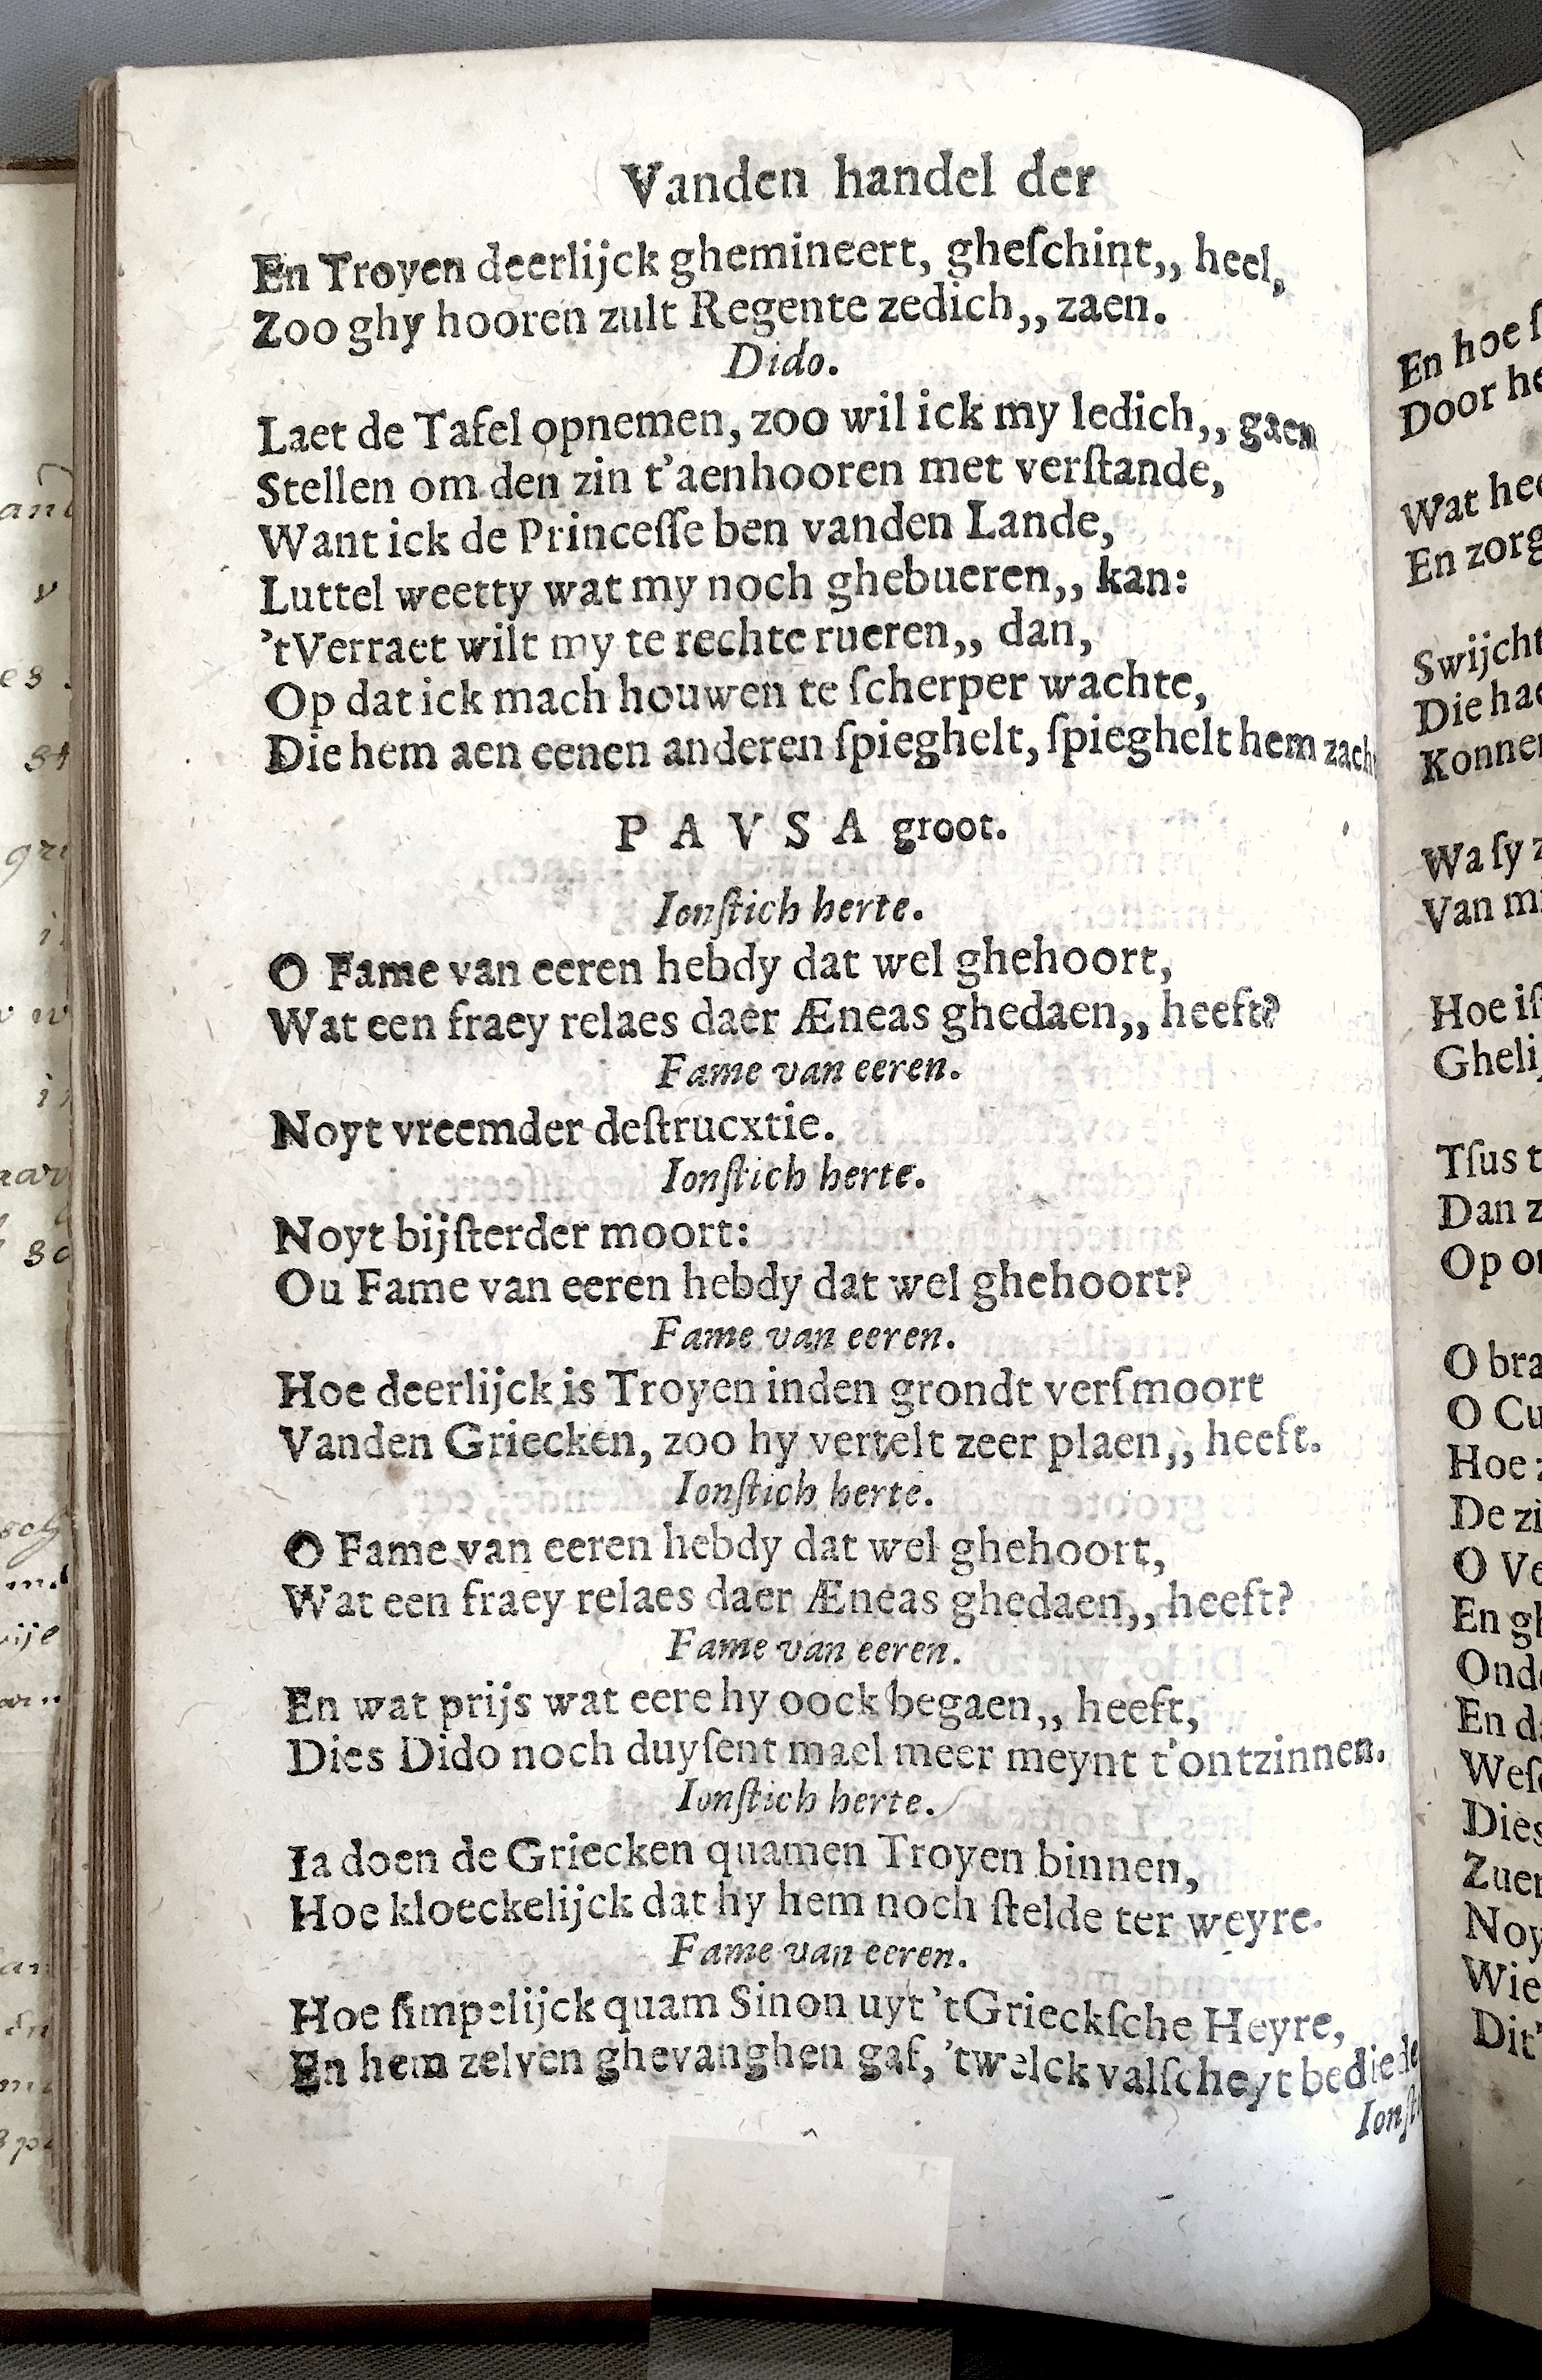 Vanden handel der
En Troyen deerlijck ghemineert, gheſchint,, heel,
Zoo ghy hooren zult Regente zedich,, zaen.
Dido.
Laet de Tafel opnemen, zoo wil ick my ledich,, gaen
Stellen om den zin t'aenhooren met verſtande,
Want ick de Princeſſe ben vanden Lande,
Luttel weetty wat my noch ghebueren,, kan:
'tVerraet wilt my te rechte rueren,, dan,
Op dat ick mach houwen te ſcherper wachte,
Die hem aen eenen anderen ſpieghelt, ſpieghelt hem
PAVSA groot.
Ionſtich herte.
O Fame van eeren hebdy dat wel ghehoort,
Wat een fraey relaes daer Æneas ghedaen,, heeft?
Fame van eeren.
Noyt vreemder deſtrucxtie.
Ionſtich herte.
Noyt bijſterder moort:
Ou Fame van eeren hebdy dat wel ghehoort?
Fame van eeren.
Hoe deerlijck is Troyen inden grondt verſmoort
Vanden Griecken, zoo hy vertelt zeer plaen,, heeft.
Ionſtich herte.
O Fame van eeren hebdy dat wel ghehoort,
Wat een fraey relaes daer Æneas ghedaen,, heeft?
Fame van eeren.
En wat prijs wat eere hy oock begaen,, heeft,
Dies Dido noch duyſent mael meer meynt t'ontzinnen.
Ionſtich herte.
Ia doen de Griecken quamen Troyen binnen,
Hoe kloeckelijck dat hy hem noch ſtelde ter weyre.
Fame van eeren.
Hoe ſimpelijck quam Sinon uyt 'tGrieckſche Heyre,
En hem zelven ghevanghen gaf, 'twelck valſcheyt bediede
En hoe
Door
Wat
En
Swijcht
Die
Wa ſy
Van
Hoe
Tſus
Dan
Op
O
O
Hoe
De
O
En
En
Dies
Wie